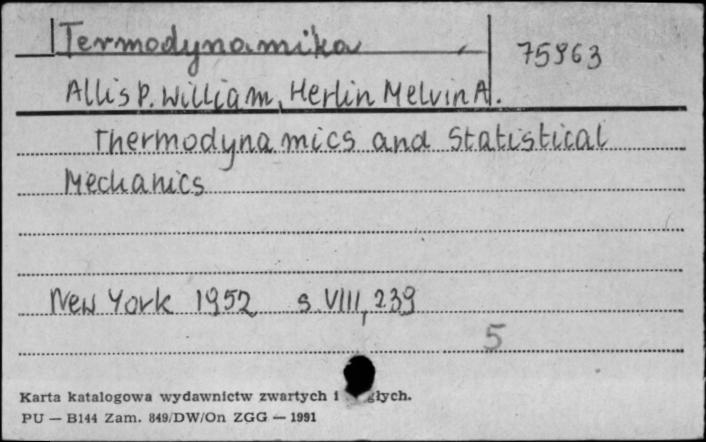 Termodynamika
75963
Allis P. William, Herlin Melvin A.
Thermodynamics and Statistical
Mechanics
New York 1952 s. VIII, 239
5
Karta katalogowa wydawnictw zwartych i
PU — B144 Zam. 849/DW/On ZGG — 1991